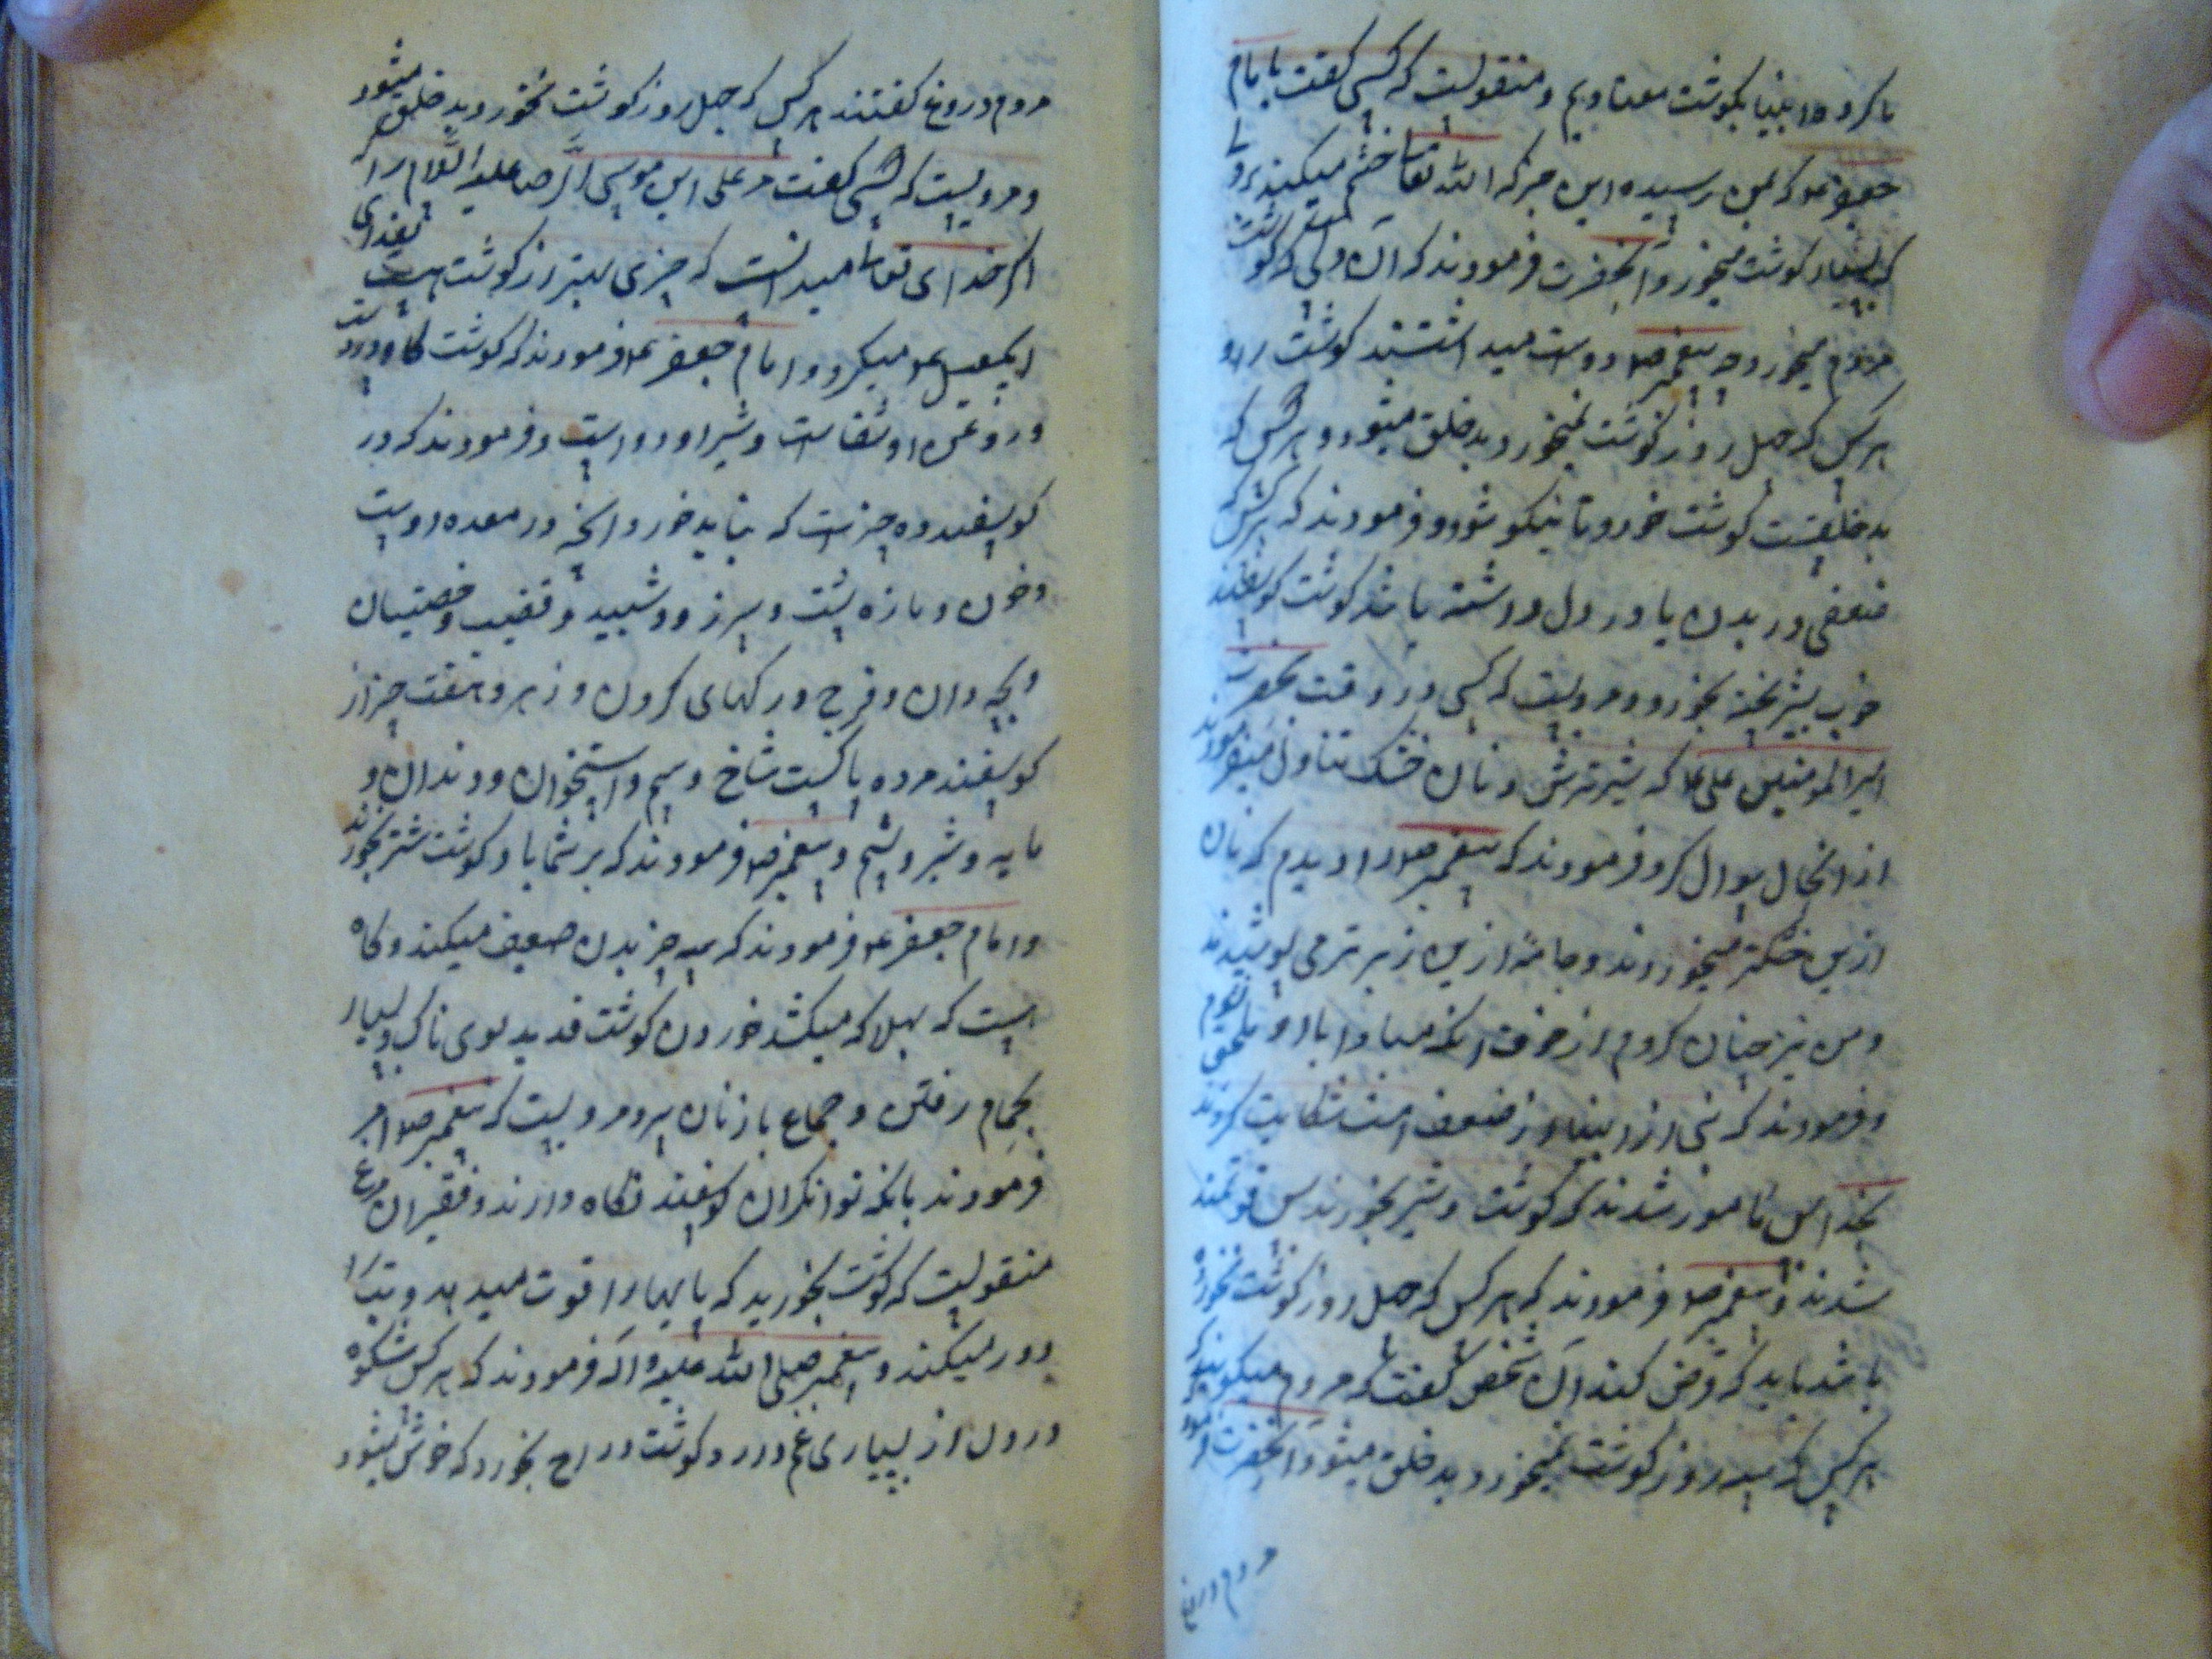 ما کروه انبیا بکوشت معتادیم و منقولست که کسی کفت بامام
جعفر ع که بمن رسیده این خبر که الله تعا خشم میکند بر
که بسیار کوشت میخورد آنحضرت فرمودند که آن ولی که کوشت
مردم میخورد چه پیغمبر ص دوست میداشتند کوشت را و
هر کس که چهل روز کوشت نمیخورد بد خلق میشود و هر کس که
بد خلقست کوشت خورد تا نیکو شود و فرمودند که هر کس که
ضعفی در بدن یا در دل داشته باشد کوشت کوسفند
خوب بشیر پخته بخورد و مرویست که کسی در وقت حضرت
امیر المومنین علی ع که شیر ترش و نان خشک تناول میفرمودند
از انحال سوال کرد فرمودند که پیغمبر ص را دیدم که نان
ازین خشکتر میخوردند و جامه ازین زبرتر می پوشیدند
و من نیز چنان کردم از خوف انکه مبادا باو ملحق نشوم
و فرمودند که نبی از انبیا از ضعف امت شکایت کردند
بخدا پس مامور شدند که کوشت و شیر بخورند پس قوتمند
شدند و پیغمبر ص فرمودند که هر کس که چهل روز کوشت نخورده
باشد باید که قرض کند آن شخص کفت که مردم میکویند که
هر کس که سه روز کوشت نمیخورد بد خلق میشود آنحضرت فرمود
مردم دروغ
مردم دروغ کفتند هر کس که چهل روز کوشت نخورد بد خلق میشود
و مرویست که کسی کفت مر علی ابن موسی الرضا علیه السلام را که
اکر خدای تعا میدانست که چیزی بهتر از کوشت هست بفدای
اسمعیل ع میکرد و امام جعفر ع فرمودند که کوشت کاو دردست
و روغن او شفاست و شیر او دواست و فرمودند که در
کوسفند ده چیزست که نباید خورد آنچه در معده اوست
و خون و مازه پشت و سپرز و دشبید و قضیب و خصیتان
و بچه دان و فرج و رکهای کردن و زهره و هفت چیز از
کوسفند مرده پاکست شاخ و سم و استخوان و دندان و
مایه و شیر و پشم و پیغمبر ص فرمودند که بر شما باد کوشت شتر بخورند
و امام جعفر ع فرمودند که سه چیز بدن ضعیف میکند و کاه
هست که بهلاک میکشد خوردن کوشت قدید بوی ناک و بسیار
بحمام رفتن و جماع با زنان پیر و مرویست که پیغمبر ص امر
فرمودند بانکه توانکران کوسفند نکاه دارند و فقیران مرغ
منقولست که کوشت بخورید که پایها را قوت میدهد و تب را
دور میکند و پیغمبر صلی الله علیه و اله فرمودند که هر کس شکوه
در دل از بسیاری غم دارد کوشت دراج بخورد که خوش میشود